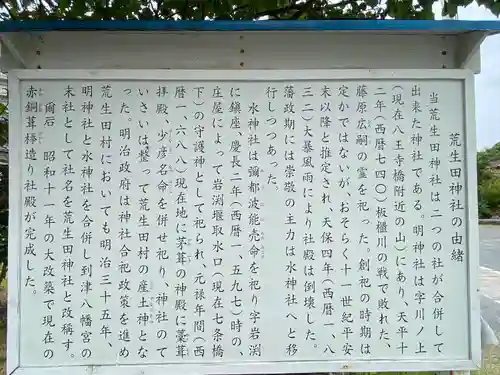 荒生田神社の由緒
当荒生田神社は二つの社が合併して
出来た神社である。明神社は字川ノ上
(現在八王寺橋附近の山)にあり、天平十
二年(西暦七四〇)板櫃川の戦で敗れた、
藤原広嗣の霊を祀った。創祀の時期は
定かではないが、おそらく十一世紀平安
末以降と推定され、天保四年(西暦一、八
三二)大暴風雨により社殿は倒壊した。
藩政期には崇敬の主力は水神社へと移
行しつつあった。
水神社は彌都波能売命を祀り字岩渕
に鎮座、慶長二年(西暦一、五九七)時の
庄屋によって岩渕堰取水口(現在七条橋
下)の守護神として祀られ、元禄年間(西
暦一、六八八)現在地に茅葺の神殿に藁葺
拝殿、少彦名命を併せ祀り、神社のて
いさいは整って荒生田村の産土神とな
った。明治政府は神社合祀政策を進め
荒生田村においても明治三十五年、
明神社と水神社を合併し到津八幡宮の
末社として社名を荒生田神社と改稱す。
爾后 昭和十一年の大改築で現在の
赤銅葺極造り社殿が完成した。